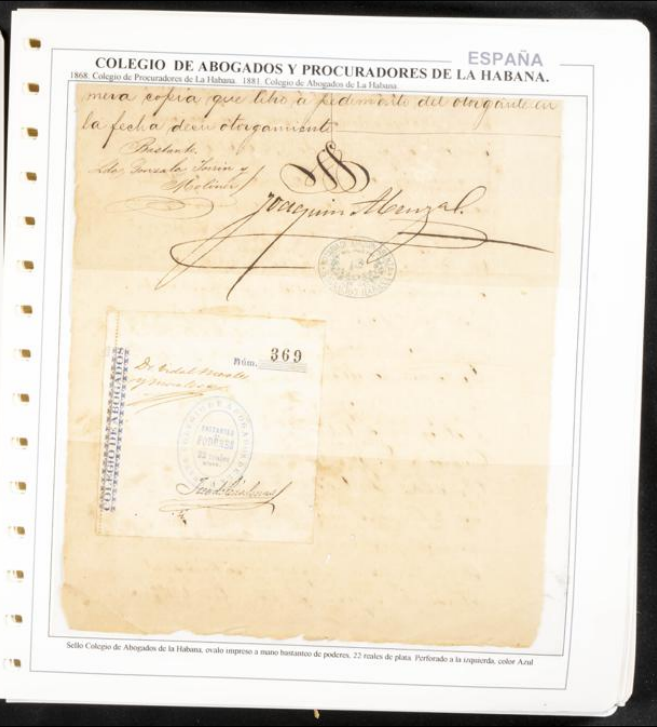 ESPAÑA
COLEGIO DE ABOGADOS Y PROCURADORES DE LA HABANA.
1868. Colegio de Procuradores de La Habana. 1881. Colegio de Abogados de La Habana.
mera copia que libro a pedimento del otorgante en
la fecha de su otorgamiento
Bastante.
Ldo. Gonzalo
Joaquin
Núm. 369
COLEGIO DE ABOGADOS
De Vidal Morales
y Morales
BASTANTEO
PODERES
Sello Colegio de Abogados de la Habana, ovalo impreso a mano bastanteo de poderes, 22 reales de plata. Perforado a la izquierda, color Azul